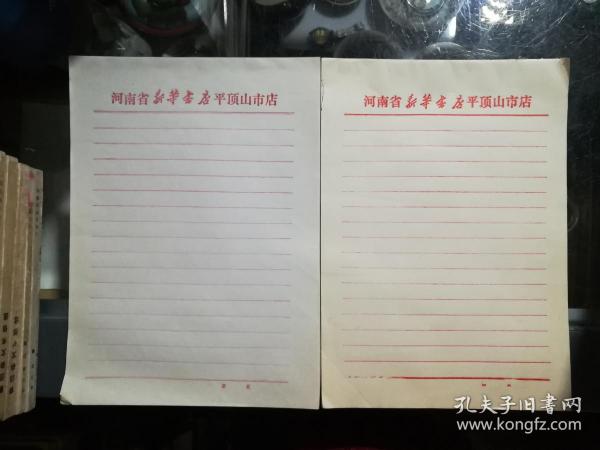 河南省新华书店平顶山市店
河南省新华书店平顶山市店
孔夫子旧书网
www.kongfz.com